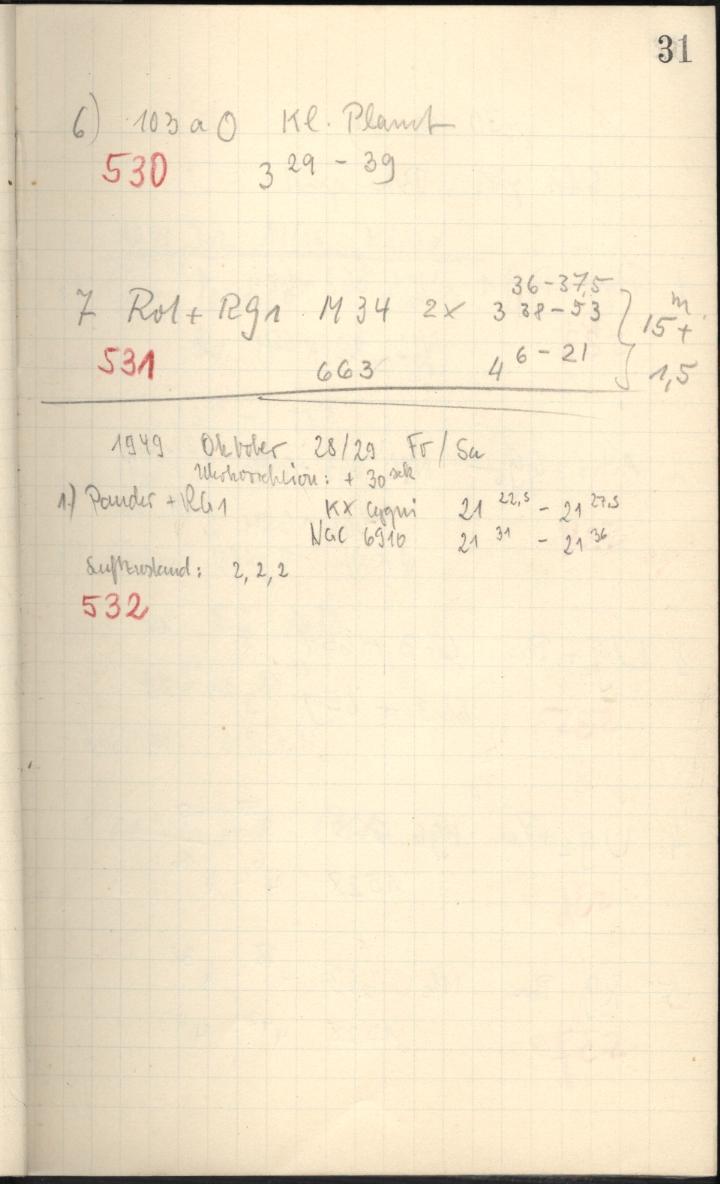 31
6) 103 a O Kl. Planet
530 3 29 - 39
36-37,5
7 Rot + RG1 M 34 2x 3 38-53 15 m +
531 663 4 6 - 21 1,5
1949 Oktober 28/29 Fr / Sa
Uhrkorrektion: + 30 sek
1.) Pander + RG1 KX Cygni 21 22,5 - 21 27,5
NGC 6910 21 31 - 21 36
Luftzustand: 2, 2, 2
532